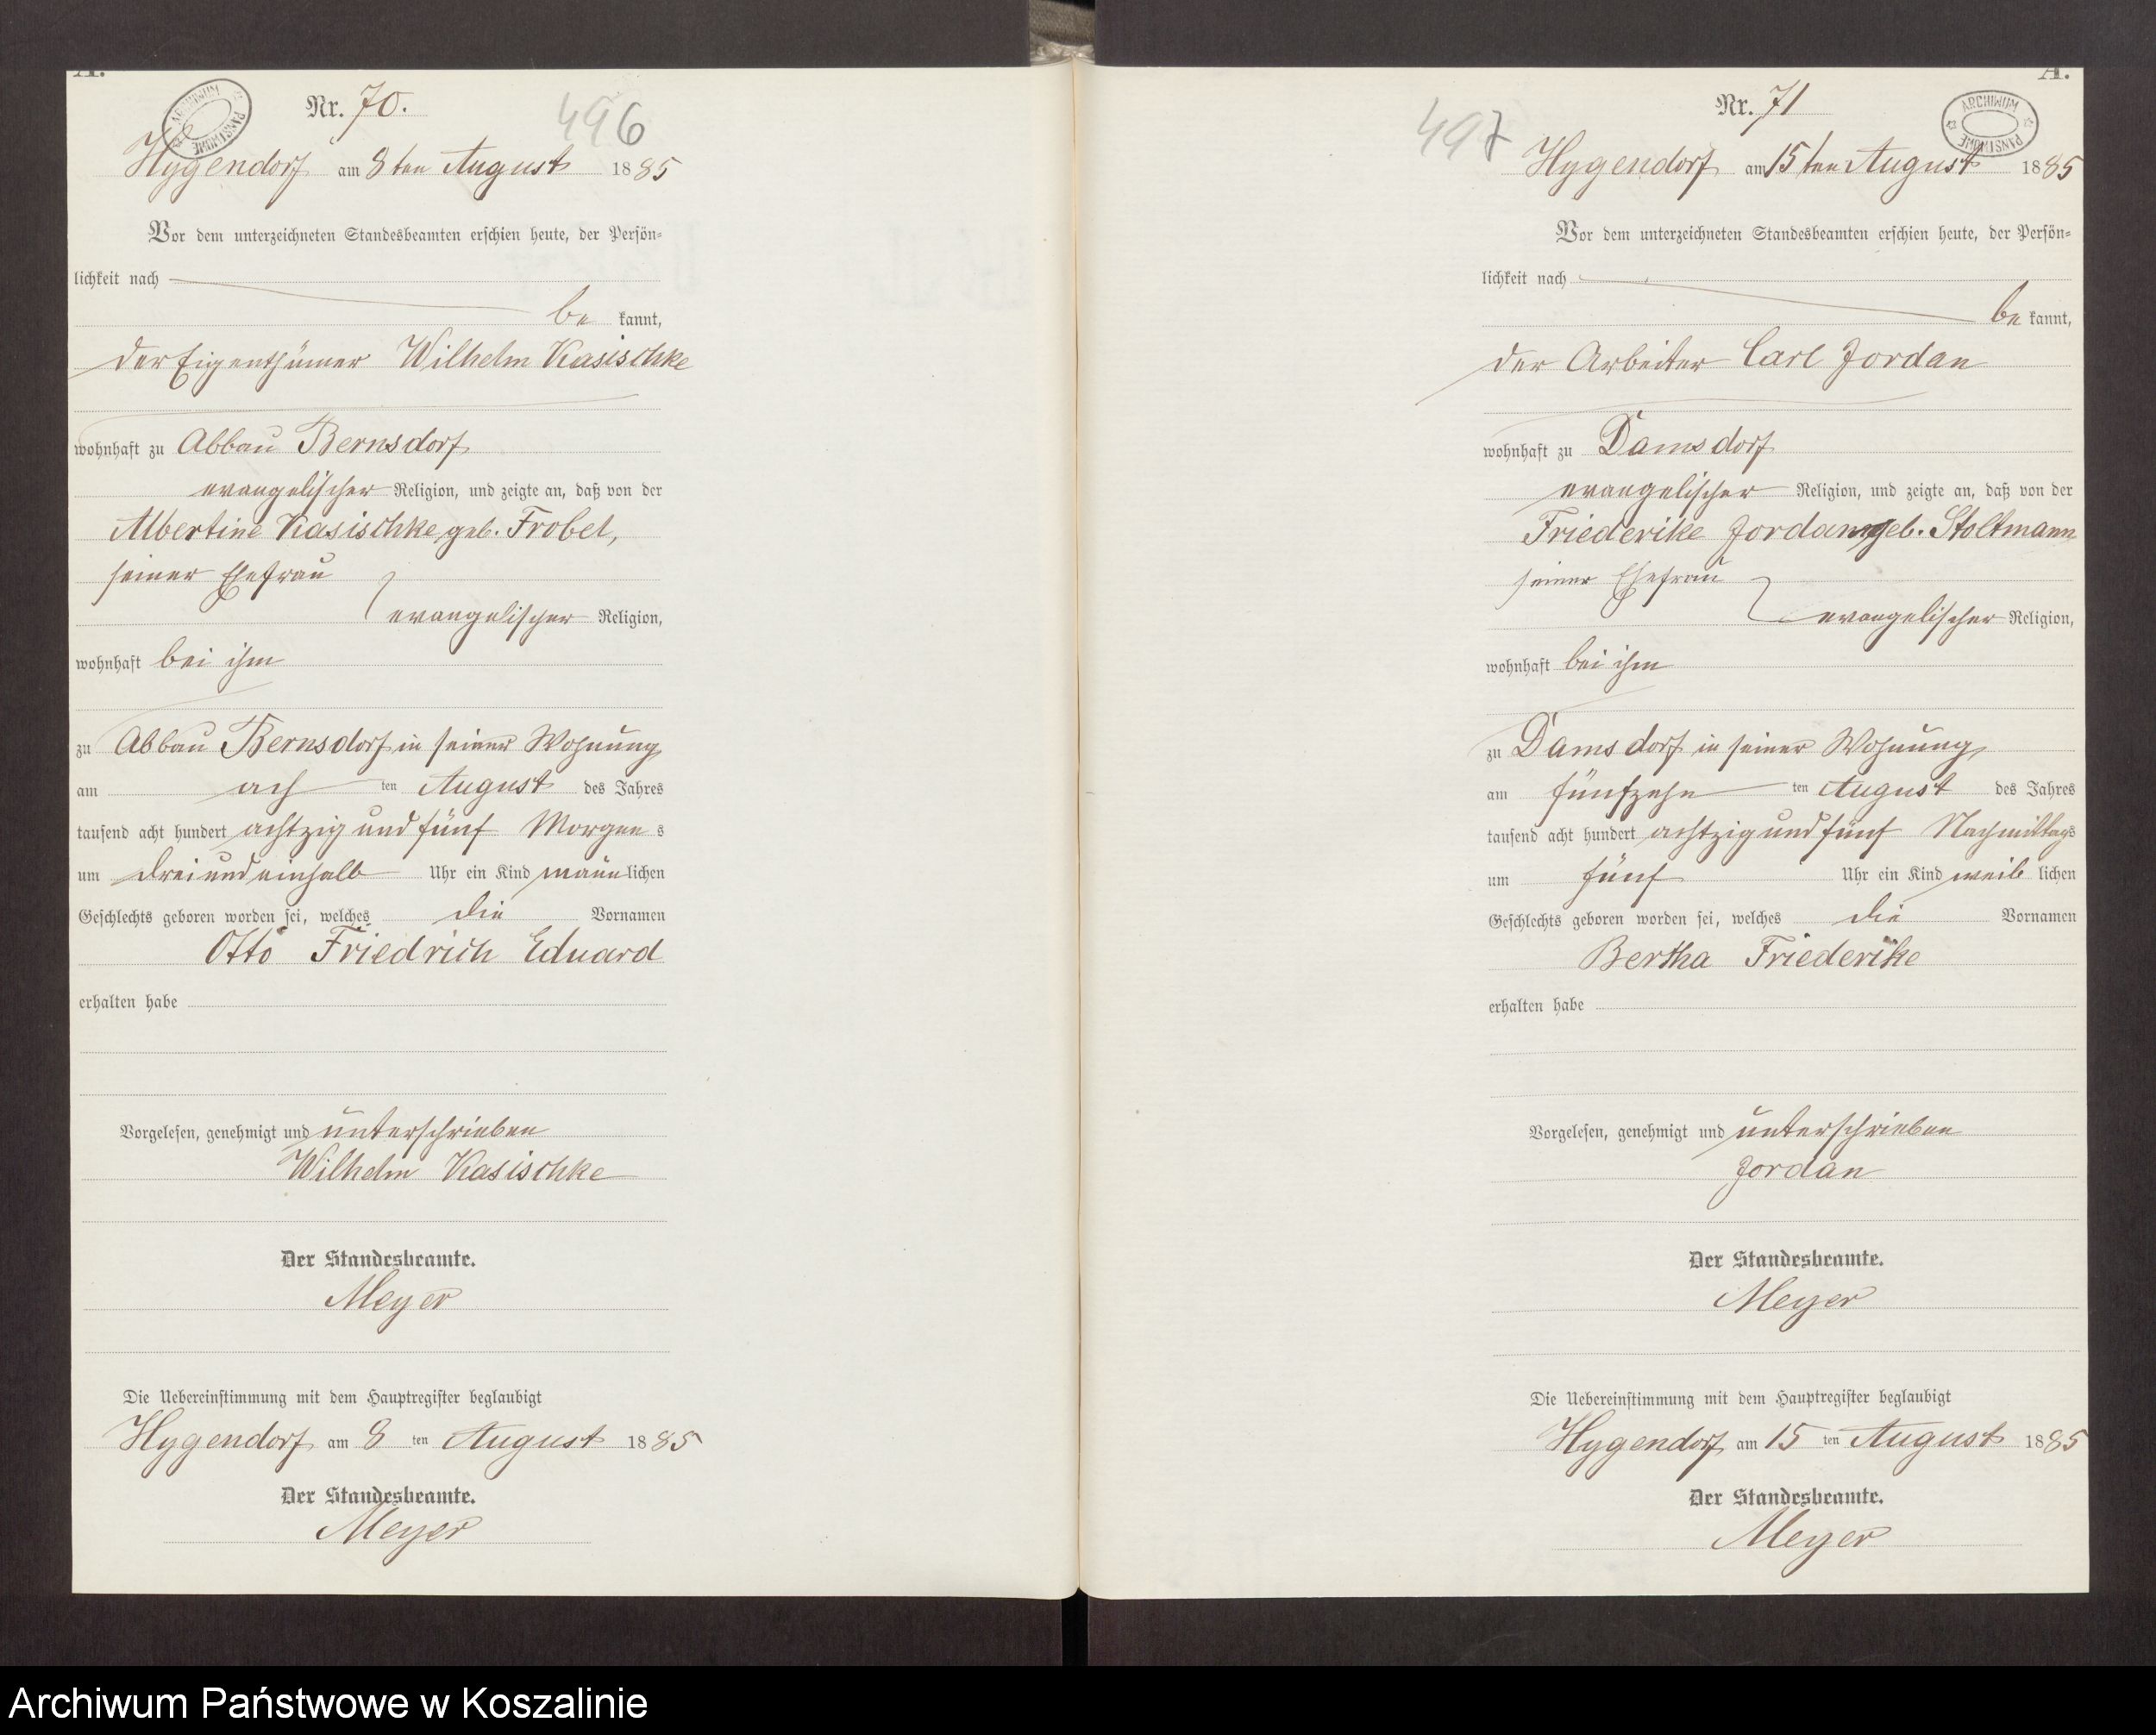 A.
ARCHIWUM PAŃSTWOWE
Nr. 70.
496
Hygendorf am 8ten August 1885
Vor dem unterzeichneten Standesbeamten erschien heute, der Persön-
lichkeit nach
be kannt,
der Eigenthümer Wilhelm Kasischke
wohnhaft zu Abbau Bernsdorf
evangelischer Religion, und zeigte an, daß von der
Albertine Kasischke, geb. Frobel,
seiner Ehefrau
evangelischer Religion,
wohnhaft bei ihm
zu Abbau Bernsdorf in seiner Wohnung,
am ach ten August des Jahres
tausend acht hundert achtzig und fünf Morgens
um drei und einhalb Uhr ein Kind männlichen
Geschlechts geboren worden sei, welches die Vornamen
Otto Friedrich Eduard
erhalten habe
Vorgelesen, genehmigt und unterschrieben
Wilhelm Kasischke
Der Standesbeamte.
Meyer
Die Uebereinstimmung mit dem Hauptregister beglaubigt
Hygendorf am 8 ten August 1885
Der Standesbeamte.
Meyer
A.
497
Nr. 71
ARCHIWUM PAŃSTWOWE
Hygendorf am 15ten August 1885
Vor dem unterzeichneten Standesbeamten erschien heute, der Persön-
lichkeit nach
be kannt,
der Arbeiter Carl Jordan
wohnhaft zu Damsdorf
evangelischer Religion, und zeigte an, daß von der
Friederike Jordan geb. Stoltmann
seiner Ehefrau
evangelischer Religion,
wohnhaft bei ihm
zu Damsdorf in seiner Wohnung,
am fünfzehn ten August des Jahres
tausend acht hundert achtzig und fünf Nachmittags
um fünf Uhr ein Kind weiblichen
Geschlechts geboren worden sei, welches die Vornamen
Bertha Friederike
erhalten habe
Vorgelesen, genehmigt und unterschrieben
Jordan
Der Standesbeamte.
Meyer
Die Uebereinstimmung mit dem Hauptregister beglaubigt
Hygendorf am 15 ten August 1885
Der Standesbeamte.
Meyer
Archiwum Państwowe w Koszalinie